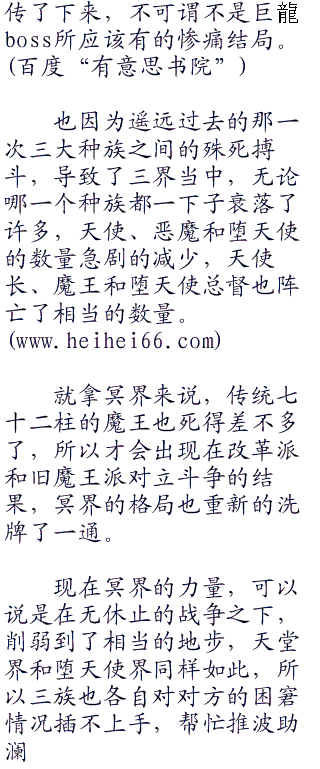 传了下来，不可谓不是巨龍
boss所应该有的惨痛结局。
(百度“有意思书院”)
也因为遥远过去的那一
次三大种族之间的殊死搏
斗，导致了三界当中，无论
哪一个种族都一下子衰落了
许多，天使、恶魔和堕天使
的数量急剧的减少，天使
长、魔王和堕天使总督也阵
亡了相当的数量。
(www.heihei66.com)
就拿冥界来说，传统七
十二柱的魔王也死得差不多
了，所以才会出现在改革派
和旧魔王派对立斗争的结
果，冥界的格局也重新的洗
牌了一通。
现在冥界的力量，可以
说是在无休止的战争之下，
削弱到了相当的地步，天堂
界和堕天使界同样如此，所
以三族也各自对对方的困窘
情况插不上手，帮忙推波助
澜